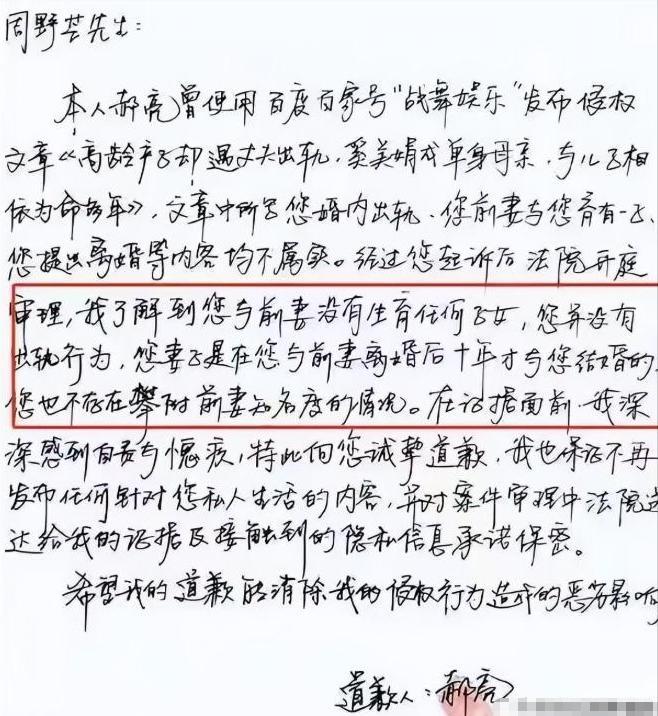 周野芒先生:
本人郝亮曾使用百度百家号“战舞娱乐”发布侵权
文章《高龄产子却遇丈夫出轨,奚美娟成单身母亲,与儿子相
依为命多年》,文章中所写您婚内出轨、您前妻与您育有一子、
您提出离婚等内容均不属实。经过您起诉后法院开庭
审理,我了解到您与前妻没有生育任何子女,您并没有
出轨行为,您妻子是在您与前妻离婚后十年才与您结婚的,
您也不存在攀附前妻知名度的情况。在证据面前,我深
深感到自责与愧疚,特此向您诚挚道歉,我也保证不再
发布任何针对您私人生活的内容,并对案件审理中法院送
达给我的证据及接触到的隐私信息承诺保密。
希望我的道歉能消除我的侵权行为造成的恶劣影响
道歉人:郝亮